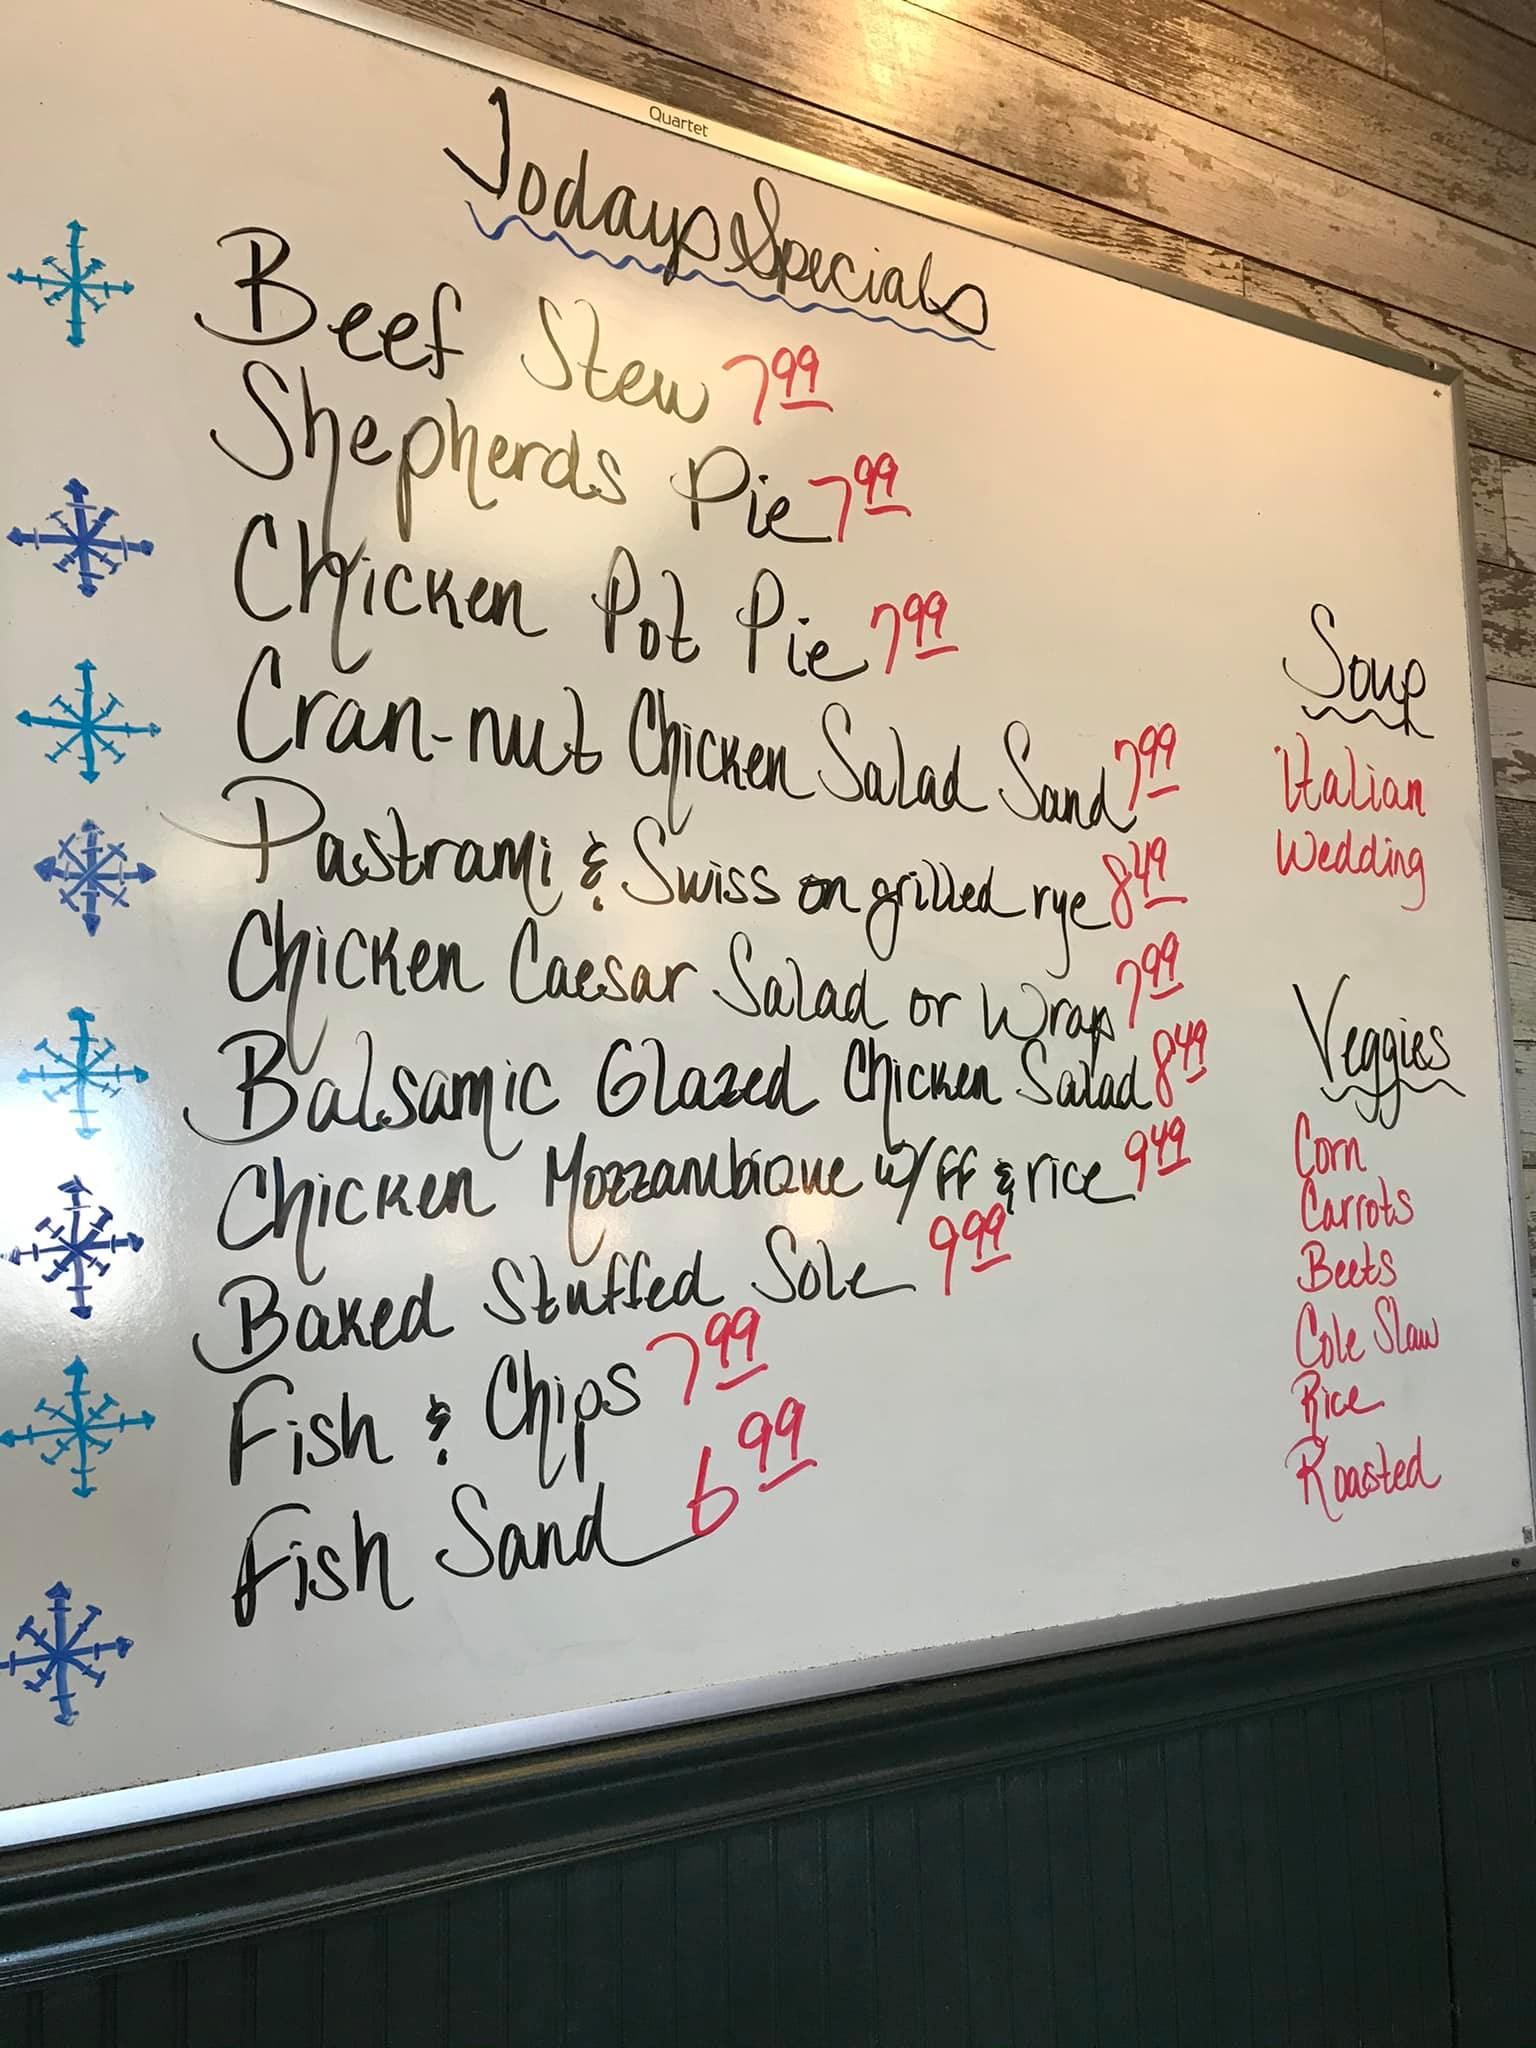 Quartet
Todays Specials
Beef Stew 7.99
Shepherds Pie 7.99
Chicken Pot Pie 7.99
Cran-nut Chicken Salad Sand 7.99
Pastrami & Swiss on grilled rye 8.49
Chicken Caesar Salad or Wrap 7.99
Balsamic Glazed Chicken Salad 8.49
Chicken Mozzambique w/ ff & rice 9.49
Baked Stuffed Sole 9.99
Fish & Chips 7.99
Fish Sand 6.99
Soup
Italian
Wedding
Veggies
Corn
Carrots
Beets
Cole Slaw
Rice
Roasted